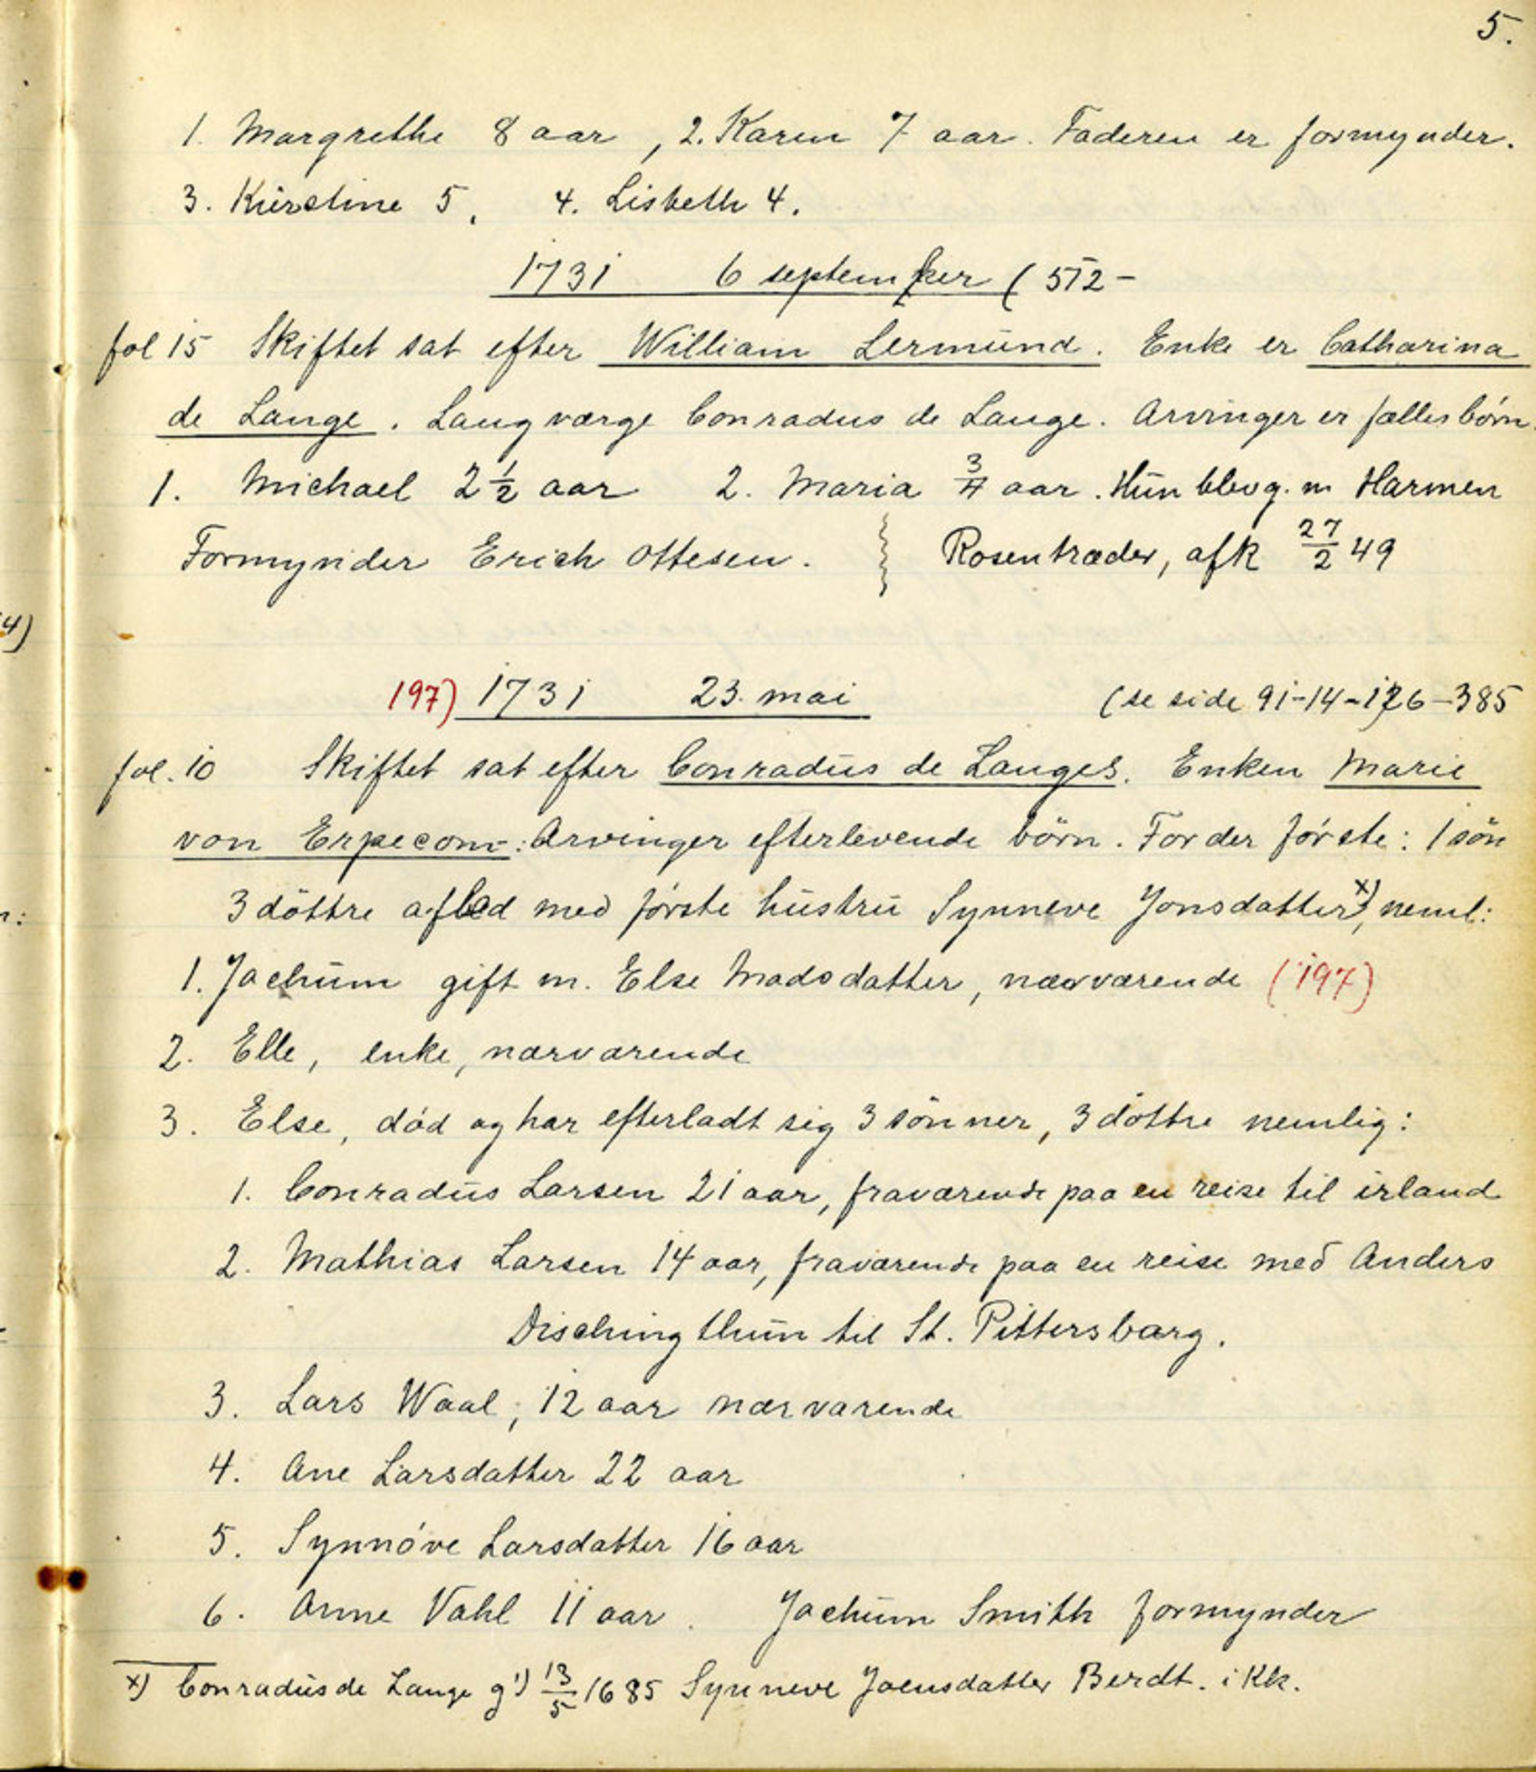 5.
1. Margrethe 8 aar, 2. Karen 7 aar. Faderen er formynder.
3. Kirstine 5, 4. Lisbeth 4.
1731 6 september (512-
fol 15 Skiftet sat efter William Lermund. Enke er Catharina
de Lange. Laugværge Conradus de Lange. Arvinger er fælles börn.
1. Michael 2 1/2 aar 2. Maria 3/4 aar. Hun blev g. m Harmen
Formynder Erich Ottesen. Rosentræder, afk 27/2 49
4)
197) 1731 23. mai (se side 91-14-126-385
fol. 10 Skiftet sat efter Conradus de Langes. Enken Marie
von Erpecom: Arvinger efterlevende börn. For der første: 1 sön
3 döttre aflad med første hustru Synneve Jonsdatter x), neml:
1. Jochum gift m. Else Madsdatter, nærværende (197)
2. Elle, enke, nærværende
3. Else, død og har efterladt sig 3 sönner, 3 döttre nemlig:
1. Conradus Larsen 21 aar, fraværende paa en reise til irland
2. Mathias Larsen 14 aar, fraværende paa en reise med Anders
Dischingthun til St. Pittersbarg.
3. Lars Waal, 12 aar nærværende
4. Ane Larsdatter 22 aar
5. Synnøve Larsdatter 16 aar
6. Anne Vahl 11 aar. Jochum Smith formynder
x) Conradus de Lange g 1) 13/5 1685 Synneve Joensdatter Berdt. i Kk.